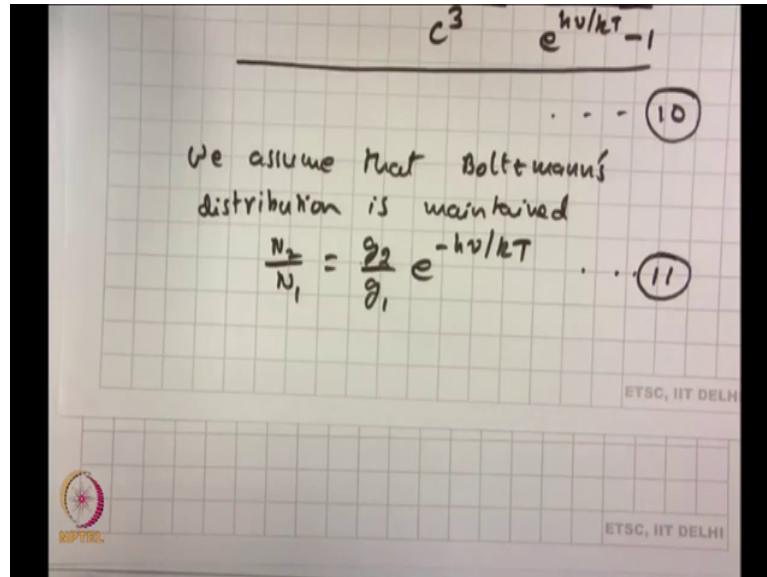 c³ e^hν/kT - 1
... (10)
We assume that Boltzmann's
distribution is maintained
N₂/N₁ = g₂/g₁ e^-hν/kT ... (11)
ETSC, IIT DELHI
ETSC, IIT DELHI
NPTEL